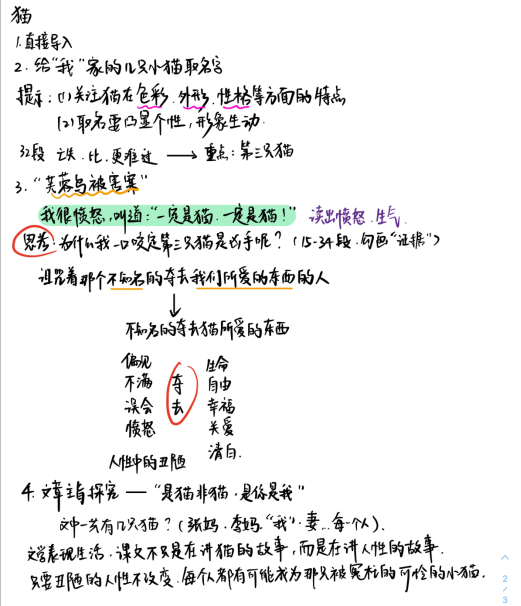 猫
1.直接导入
2.给“我”家的几只小猫取名字
提示:(1)关注猫在色彩、外形、性格等方面的特点
(2)取名要凸显个性,形象生动.
32段 亡失.比.更难过 → 重点:第三只猫
3.“芙蓉鸟被害案”
我很愤怒,叫道:“一定是猫.一定是猫!” 读出愤怒.生气
思考:为什么我一口咬定第三只猫是凶手呢?(15-34段.勾画“证据”)
诅咒着那个不知名的夺去我们所爱的东西的人
不知名的夺去猫所爱的东西
偏见 生命
不满 夺 自由
误会 去 幸福
愤怒 关爱
清白.
人性中的丑陋
4.文章主旨探究——“是猫非猫.是你是我”
文中一共有几只猫?(张妈.李妈.“我”.妻...每一个人).
文学表现生活.课文不只是在讲猫的故事,而是在讲人性的故事.
只要丑陋的人性不改变.每个人都有可能成为那只被冤枉的可怜的小猫.
2/3